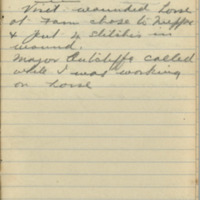 Visit wounded horse
at Ram chose to Nieppe
& put 4 stitches in
wound.
Major Sutcliffe called
while I was working
on horse